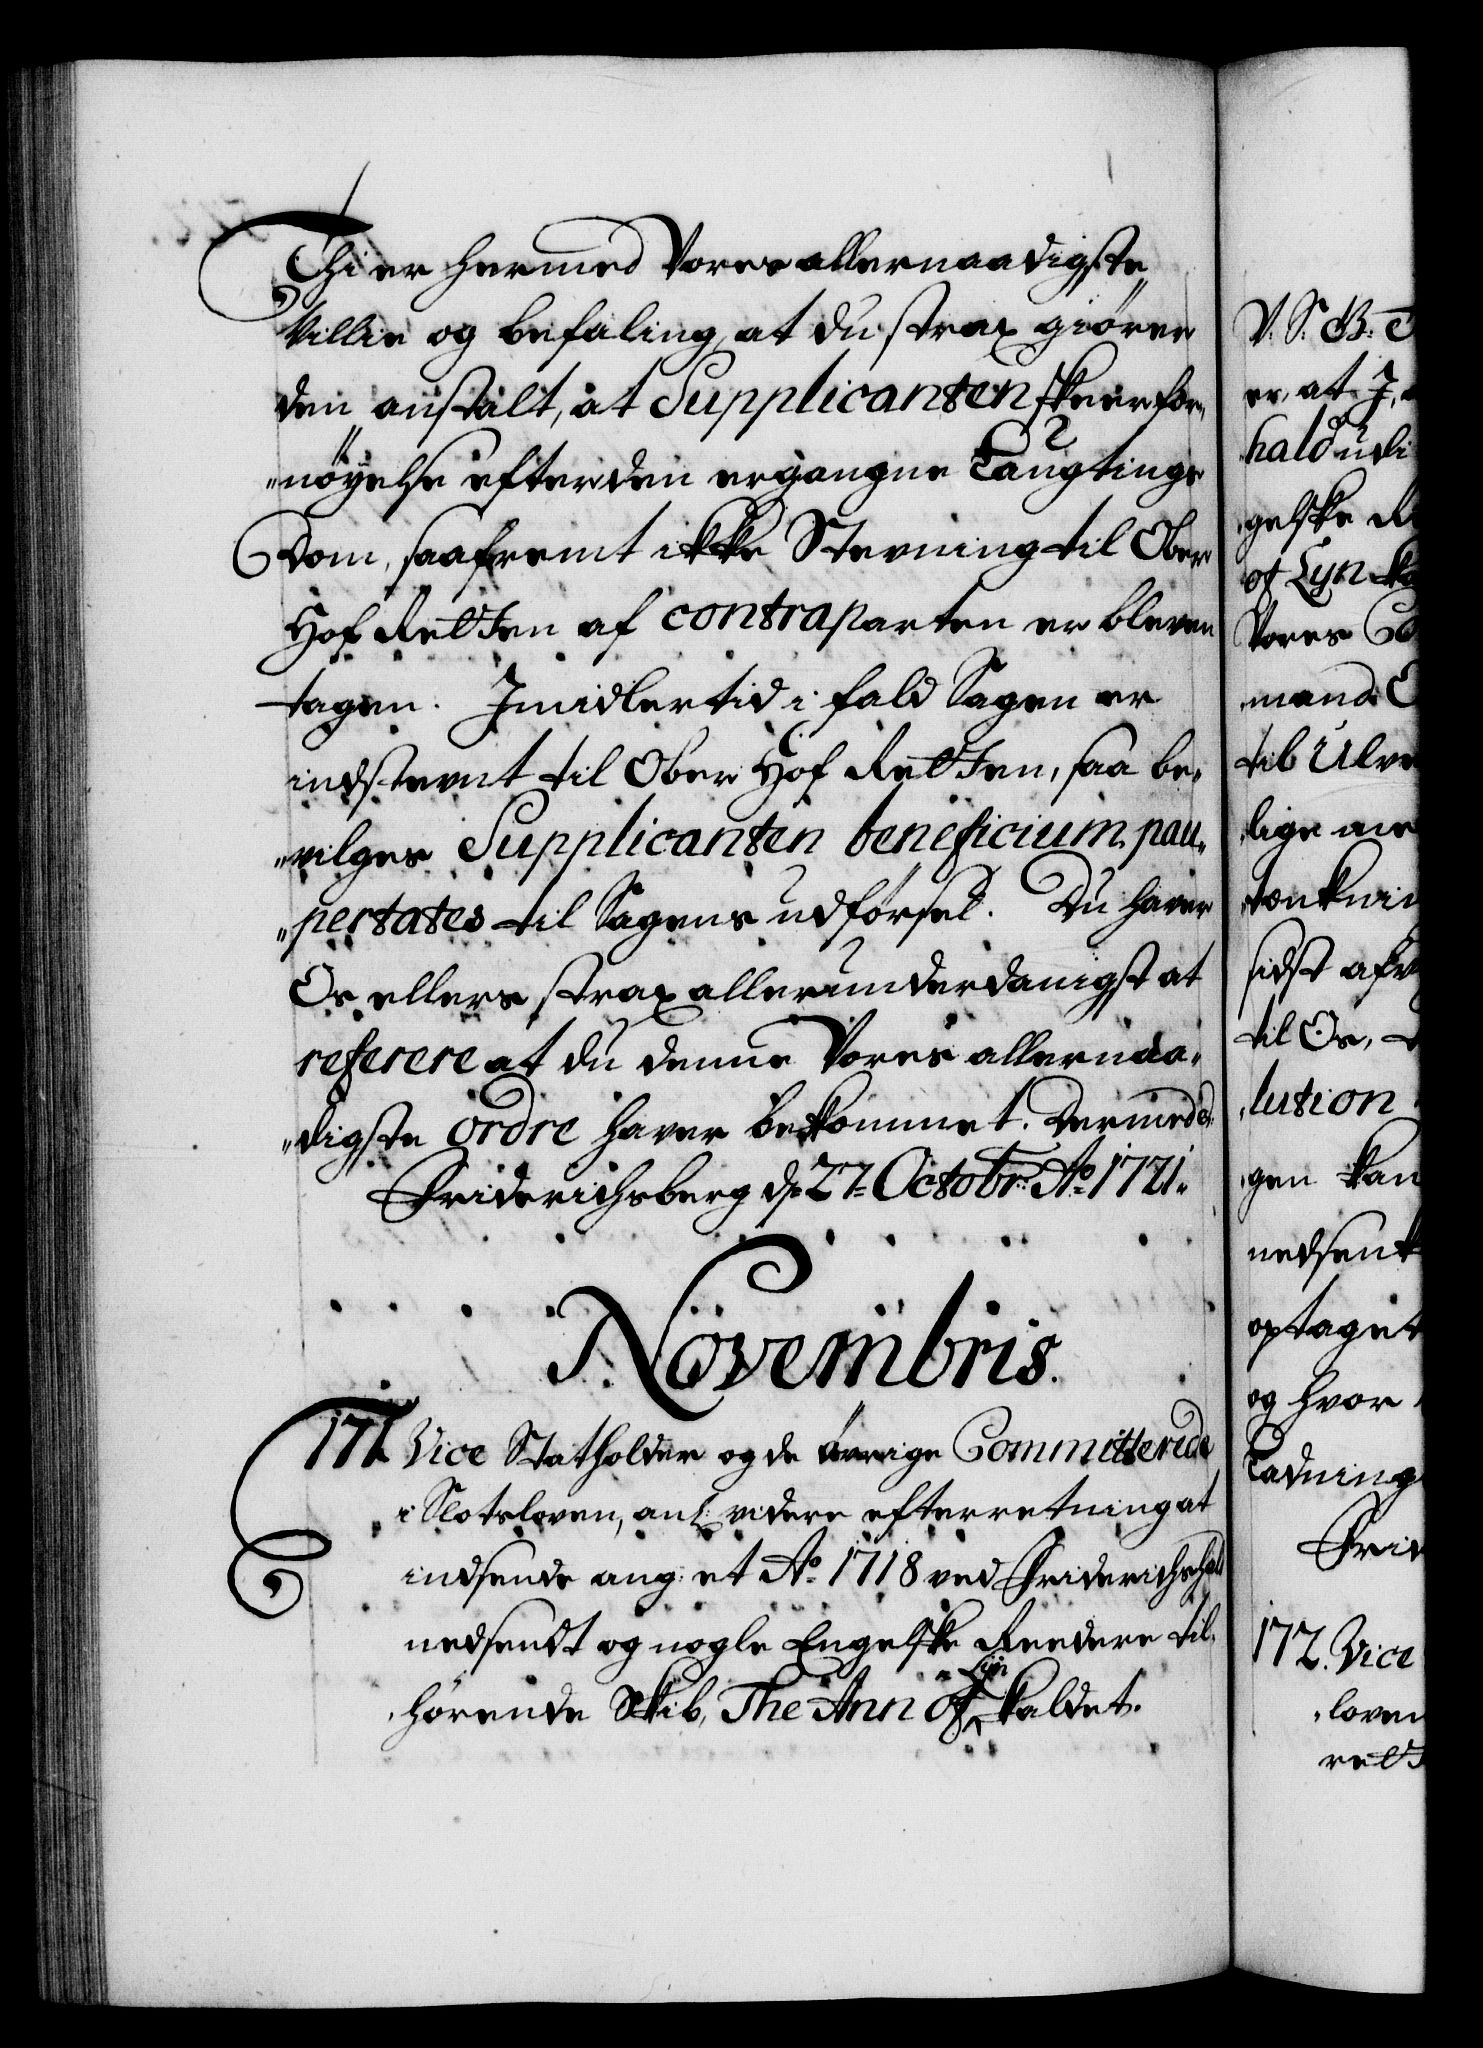 Thi er hermed Vores allernaadigste
Villie og befaling, at du strax giörer
den anstalt, at Supplicanten skeer for„
„nöyelse efter den ergangne Laugtings
Dom, saafremt ikke Stevning til Ober
Hof Retten af contraparten er bleven
tagen. Imidlertid i fald Sagen er
indstevnt til Ober Hof Retten, saa be„
„vilges Supplicanten beneficium pau„
„pertates til Sagens udförsel. Du haver
Os ellers strax allerunderdanigst at
referere at du denne Vores allernaa„
„digste ordre haver bekommet. Dermed &.
Friderichsberg d. 27. Octobr: Ao. 1721.
Novembris.
171. Vice Statholder og de övrige Committerede
i Slotsloven, anl. videre efterretning at
indsende ang: et Ao. 1718 ved Friderichshald
nedsendt og nogle Engelske Reedere til„
„hörende Skib, The Ann of Lyn kaldet.
V. S. G. T
er, at I,
hald udi
gelske Re
of Lyn ka
Vores
mand O
til Ulve
lige me
tænkni
sidst afv
til Os,
„lution
gen kan
nedsenk
optaget
og hvor
Ladning
Frid
172. Vice
„loven
rett